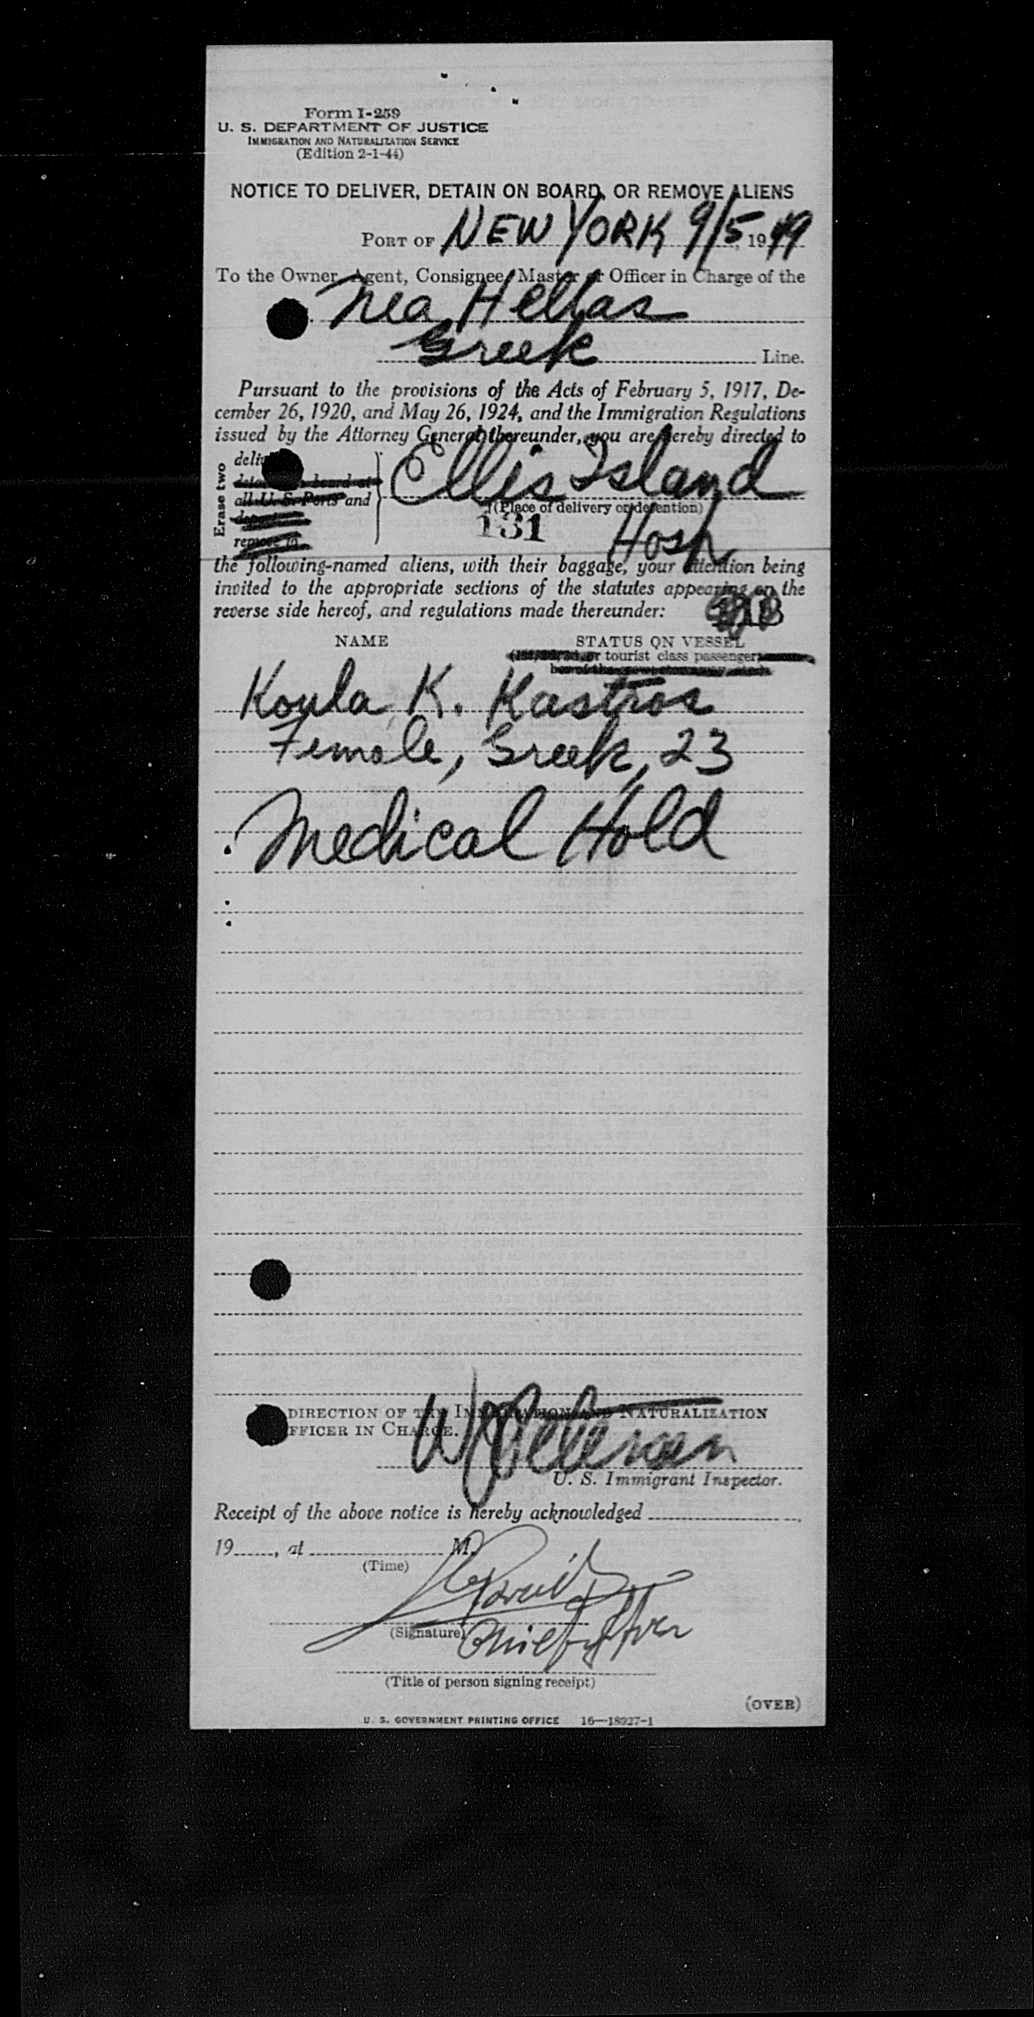 Form I-259
U. S. DEPARTMENT OF JUSTICE
IMMIGRATION AND NATURALIZATION SERVICE
(Edition 2-1-44)
NOTICE TO DELIVER, DETAIN ON BOARD, OR REMOVE ALIENS
PORT OF NEW YORK 9/5, 1949
To the Owner, Agent, Consignee, Master or Officer in Charge of the
Nea Hellas
Greek Line.
Pursuant to the provisions of the Acts of February 5, 1917, De-
cember 26, 1920, and May 26, 1924, and the Immigration Regulations
issued by the Attorney General thereunder, you are hereby directed to
Erase two
board at
all U. S. Ports and
remove to
Ellis Island
(Place of delivery or detention)
131 Hosp
the following-named aliens, with their baggage, your attention being
invited to the appropriate sections of the statutes appearing on the
reverse side hereof, and regulations made thereunder:
NAME STATUS ON VESSEL
or tourist class passenger
Koula K. Kastros
Female, Greek, 23
Medical Hold
DIRECTION OF THE IMMIGRATION AND NATURALIZATION
OFFICER IN CHARGE.
U. S. Immigrant Inspector.
Receipt of the above notice is hereby acknowledged
19, at M.
(Time)
(Signature)
(Title of person signing receipt)
(OVER)
U. S. GOVERNMENT PRINTING OFFICE 16—18927-1